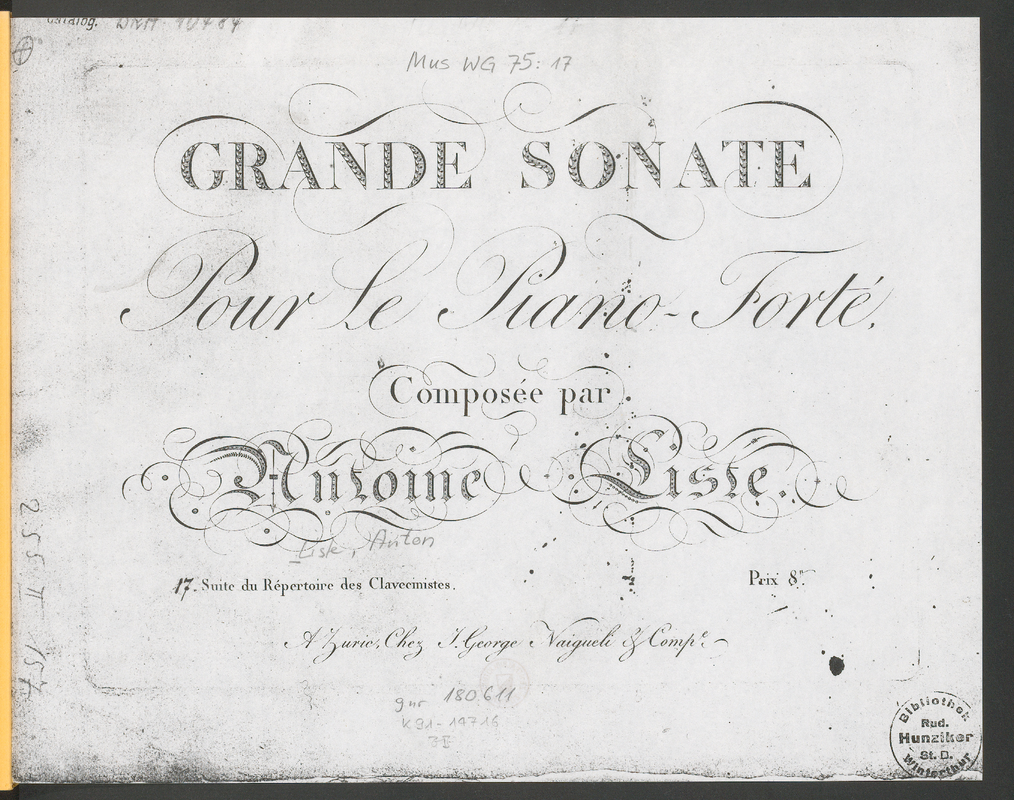 Catalog. DRM 10484
Mus WG 75: 17
GRANDE SONATE
Pour Le Piano-Forté.
Composée par
Antoine Liste.
Liste, Anton
17. Suite du Répertoire des Clavecinistes.
Prix 8
A Zuric, Chez J. George Naigueli & Comp.e
gnr 180611
K91-14716
Bibliothek
Rud.
Hunziker
St. D.
Winterthur